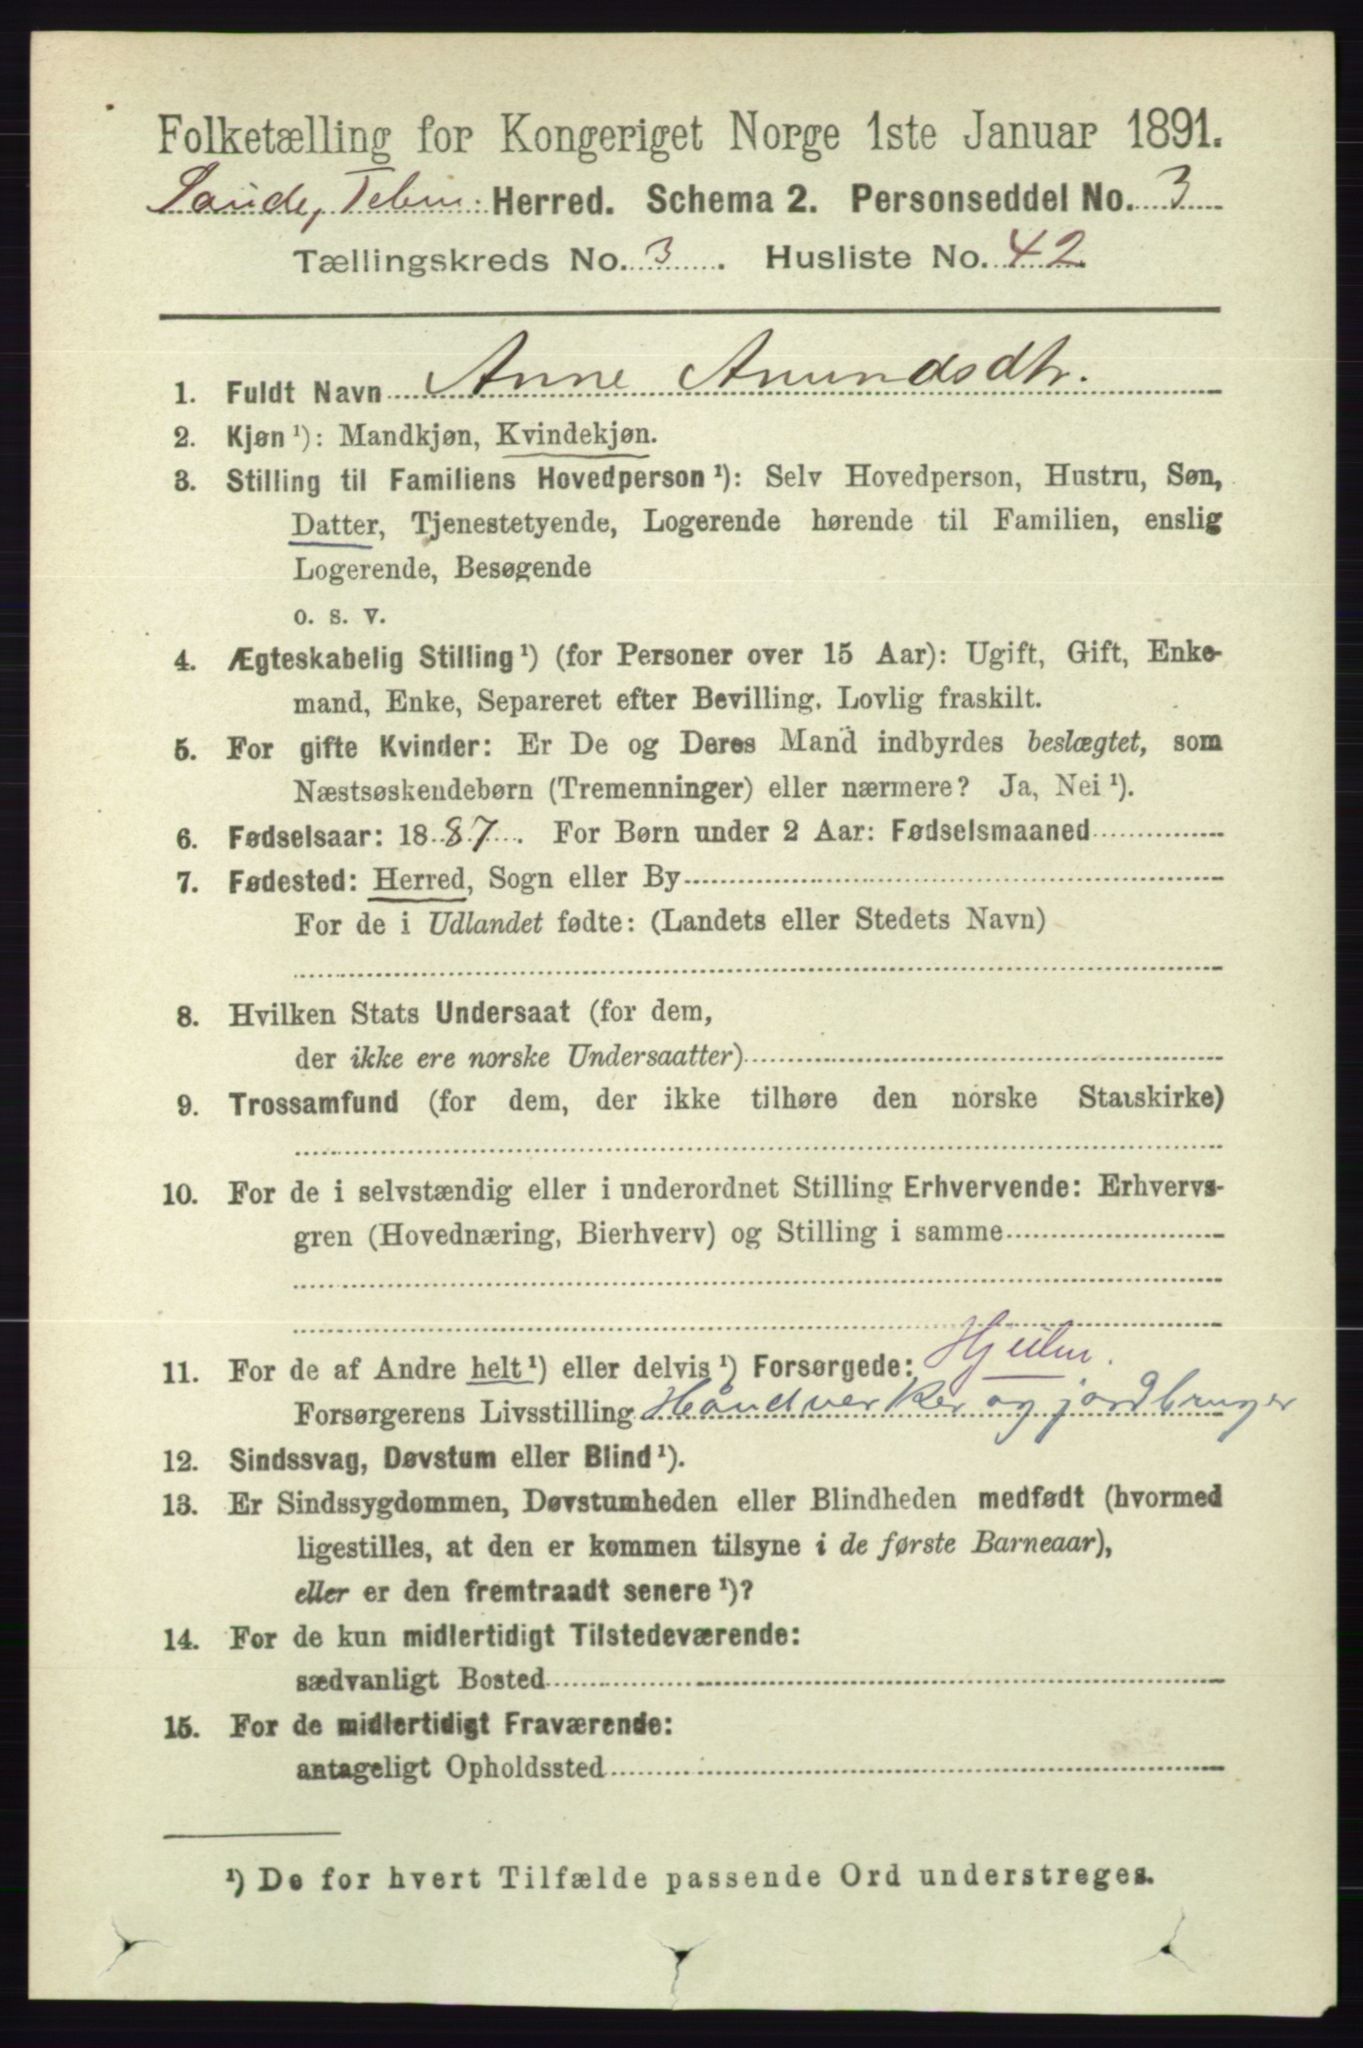 Folketælling for Kongeriget Norge 1ste Januar 1891.
Saude, Telem: Herred. Schema 2. Personseddel No. 3
Tællingskreds No. 3. Husliste No. 42
1. Fuldt Navn Anne Amundsdtr.
2. Kjøn ¹): Mandkjøn, Kvindekjøn.
3. Stilling til Familiens Hovedperson ¹): Selv Hovedperson, Hustru, Søn,
Datter, Tjenestetyende, Logerende hørende til Familien, enslig
Logerende, Besøgende
o. s. v.
4. Ægteskabelig Stilling ¹) (for Personer over 15 Aar): Ugift, Gift, Enke-
mand, Enke, Separeret efter Bevilling. Lovlig fraskilt.
5. For gifte Kvinder: Er De og Deres Mand indbyrdes beslægtet, som
Næstsøskendebørn (Tremenninger) eller nærmere? Ja, Nei ¹).
6. Fødselsaar: 1887. For Børn under 2 Aar: Fødselsmaaned
7. Fødested: Herred, Sogn eller By
For de i Udlandet fødte: (Landets eller Stedets Navn)
8. Hvilken Stats Undersaat (for dem,
der ikke ere norske Undersaatter)
9. Trossamfund (for dem, der ikke tilhøre den norske Statskirke)
10. For de i selvstændig eller i underordnet Stilling Erhvervende: Erhvervs-
gren (Hovednæring, Bierhverv) og Stilling i samme
11. For de af Andre helt ¹) eller delvis ¹) Forsørgede:
Forsørgerens Livsstilling Haandverker og jordbruger
12. Sindssvag, Døvstum eller Blind ¹).
13. Er Sindssygdommen, Døvstumheden eller Blindheden medfødt (hvormed
ligestilles, at den er kommen tilsyne i de første Barneaar),
eller er den fremtraadt senere ¹)?
14. For de kun midlertidigt Tilstedeværende:
sædvanligt Bosted
15. For de midlertidigt Fraværende:
antageligt Opholdssted
¹) De for hvert Tilfælde passende Ord understreges.